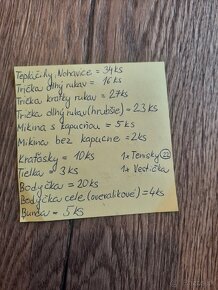 Tepláčiky, Nohavice = 34ks
Tričká dlhý rukáv = 16ks
Tričká krátky rukáv = 27ks
Tričká dlhý rukáv (hrubšie) = 23 ks
Mikina s kapucňou = 5 ks
Mikina bez kapucne = 2ks
Kraťasky = 10ks 1x Tenisky (22)
Tielka = 3 ks 1x Vestička
Bodyčka = 20ks
Bodyčka celé (overalikové) = 4ks
Bunda = 5 ks